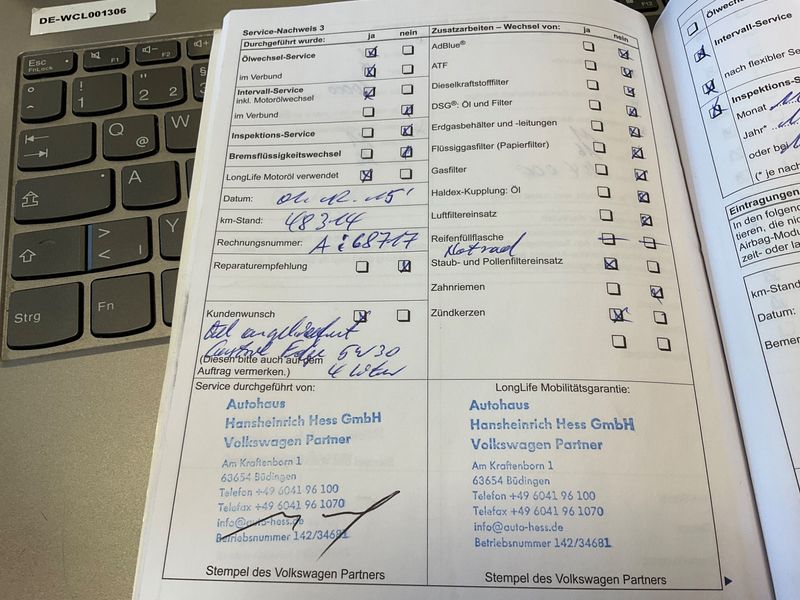 DE-WCL001306
Esc
FnLock
F1
F2
!
1
"
2 2
§
3
Q
@
W
A
>
<
|
Y
Strg
Fn
Service-Nachweis 3
Durchgeführt wurde: ja nein
Ölwechsel-Service
im Verbund
Intervall-Service
inkl. Motorölwechsel
im Verbund
Inspektions-Service
Bremsflüssigkeitswechsel
LongLife Motoröl verwendet
Datum: 01.12.15
km-Stand: 48314
Rechnungsnummer:
Reparaturempfehlung
Kundenwunsch
Öl angeliefert
Castrol Edge 5w30
(Diesen bitte auch auf dem
Auftrag vermerken.) 4 Liter
Service durchgeführt von:
Autohaus
Hansheinrich Hess GmbH
Volkswagen Partner
Am Kraftenborn 1
63654 Büdingen
Telefon +49 6041 96 100
Telefax +49 6041 96 1070
info@auto-hess.de
Betriebsnummer 142/34681
Stempel des Volkswagen Partners
Zusatzarbeiten – Wechsel von: ja nein
AdBlue®
ATF
Dieselkraftstofffilter
DSG®: Öl und Filter
Erdgasbehälter und -leitungen
Flüssiggasfilter (Papierfilter)
Gasfilter
Haldex-Kupplung: Öl
Luftfiltereinsatz
Reifenfüllflasche
Notrad
Staub- und Pollenfiltereinsatz
Zahnriemen
Zündkerzen
LongLife Mobilitätsgarantie:
Autohaus
Hansheinrich Hess GmbH
Volkswagen Partner
Am Kraftenborn 1
63654 Büdingen
Telefon +49 6041 96 100
Telefax +49 6041 96 1070
info@auto-hess.de
Betriebsnummer 142/34681
Stempel des Volkswagen Partners
Intervall-Service
nach flexibler
Monat
Jahr*
oder bei
(* je nach
Eintragungen
In den folgen
tieren, die
Airbag-Modu
zeit- oder
km-Stand
Datum: